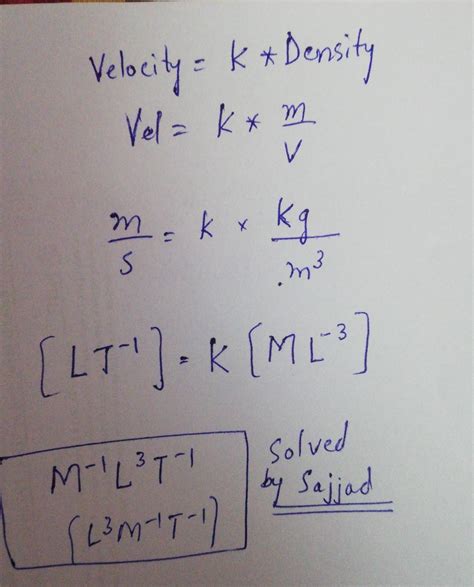 Velocity = K * Density
Vel = K * m/V
m/s = k * kg/m³
[LT⁻¹] = K [ML⁻³]
M⁻¹L³T⁻¹
(L³M⁻¹T⁻¹)
Solved
by Sajjad